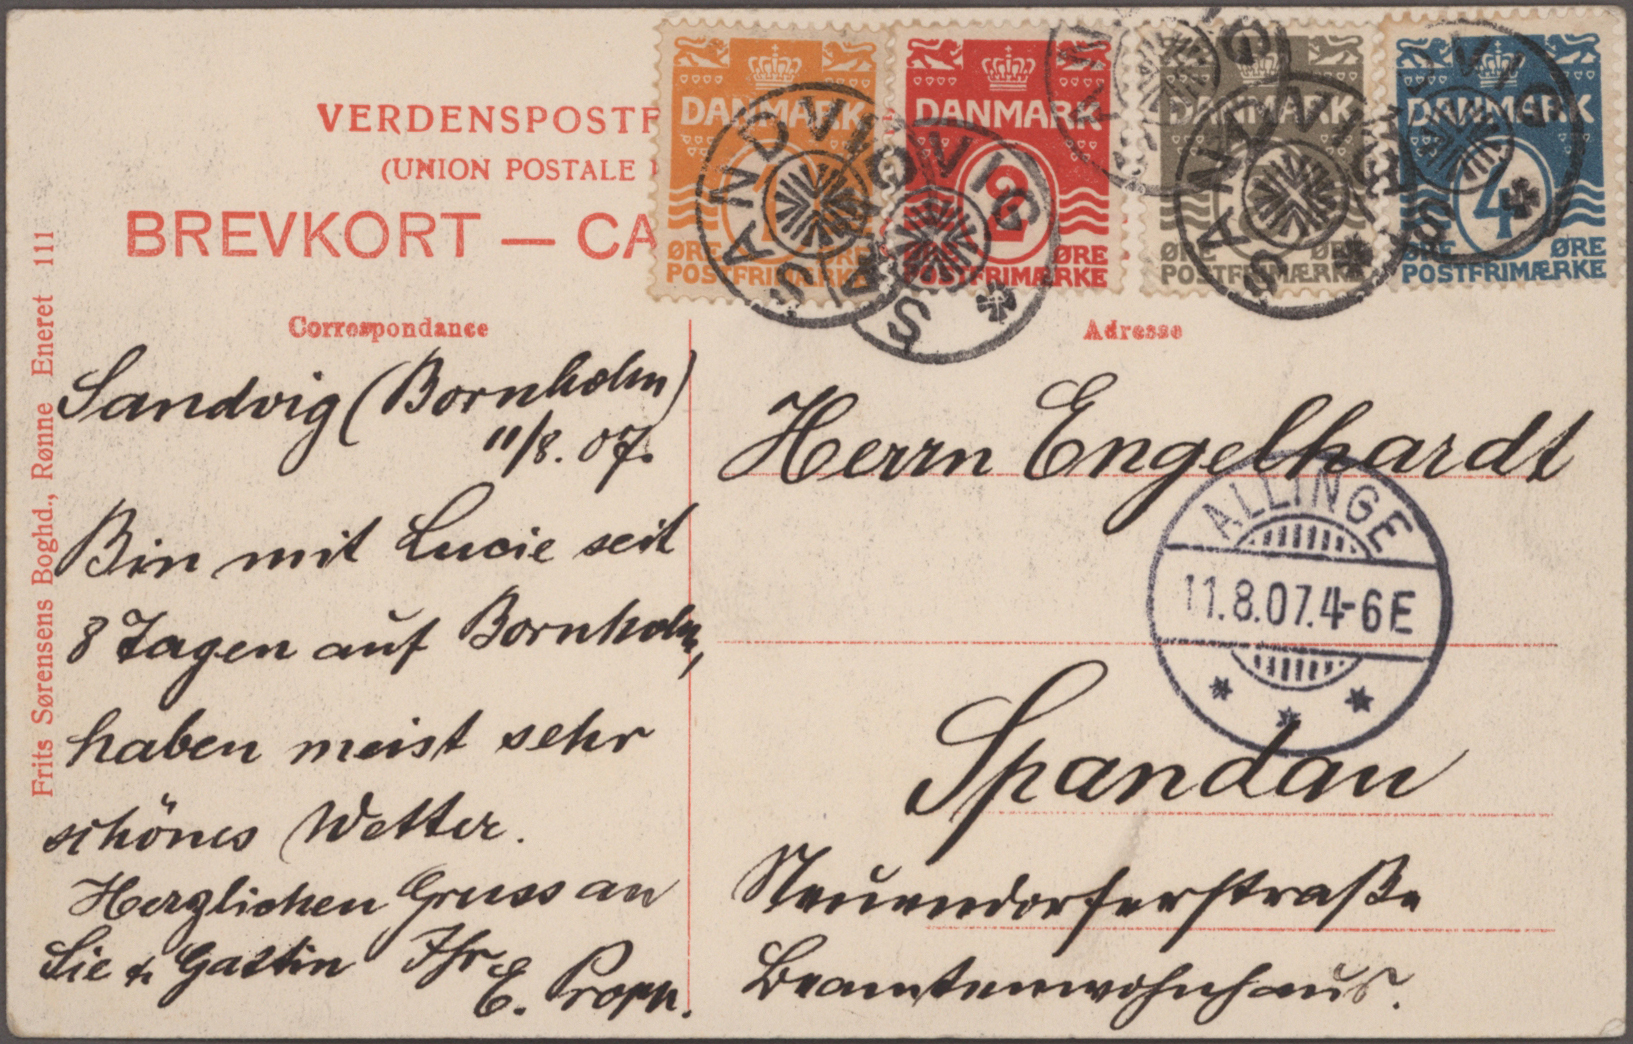 VERDENSPOSTF
(UNION POSTALE
BREVKORT — CA
DANMARK
1
ØRE
POSTFRIMÆRKE
DANMARK
2
ØRE
POSTFRIMÆRKE
DANMARK
ØRE ØRE
POSTFRIMÆRKE
DANMARK
4
ØRE ØRE
POSTFRIMÆRKE
SANDVIG
SANDVIG
SANDVIG
Correspondance
Adresse
Frits Sørensens Boghd., Rønne Eneret 111
Sandvig (Bornholm)
11/8. 07.
Bin mit Lucie seit
8 Tagen auf Bornholm,
haben meist sehr
schönes Wetter.
Herzlichen Gruss an
Sie & Gattin Ihr
E. Propp.
Herrn Engelhardt
ALLINGE
11.8.07.4-6E
Spandau
Neuendorferstraße
Beamtenwohnhaus.